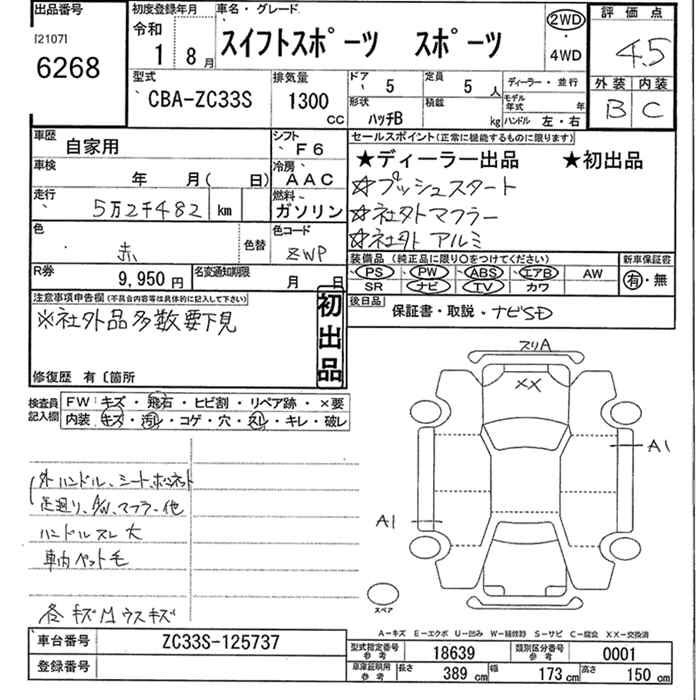 出品番号
[2107]
6268
初度登録年月
令和
1 8月
車名・グレード
スイフトスポーツ スポーツ
2WD
・
4WD
評価点
4.5
外装 内装
B C
型式
CBA-ZC33S
排気量
1300
CC
ドア
5
定員
5 人
形状
ハッチB
積載
kg
ディーラー・並行
モデル年式 年
ハンドル 左・右
車歴
自家用
シフト
F6
車検
年 月( 日)
冷房
AAC
走行
5万2千482 km
燃料
ガソリン
色
赤
色替
色コード
ZWP
R券
9,950円
名変通知期限
月 日
セールスポイント(正常に機能するものに限ります)
★ディーラー出品 ★初出品
☆プッシュスタート
☆社外マフラー
☆社外アルミ
装備品 (純正品に限り○をつけてください)
PS PW ABS エアB AW
SR ナビ TV カワ
新車保証書
有・無
後日品
保証書・取説・ナビSD
注意事項申告欄(不具合内容等は具体的に記入して下さい)
※社外品多数要下見
初出品
修復歴 有〔箇所
検査員記入欄
FW:キズ・飛石・ヒビ割・リペア跡・×要
内装:キズ・汚れ・コゲ・穴・スレ・キレ・破レ
外ハンドル、シート、ボンネット
足廻り、A/W、マフラー、他
ハンドルスレ大
車内ペット毛
各キズ凹ウスキズ
スリA
××
A1
A1
スペア
A-キズ E-エクボ U-凹み W-補修跡 S-サビ C-腐食 XX-交換済
車台番号
ZC33S-125737
登録番号
型式指定番号 参考
18639
類別区分番号 参考
0001
車庫証明用 参考
長さ 389 cm 幅 173 cm 高さ 150 cm